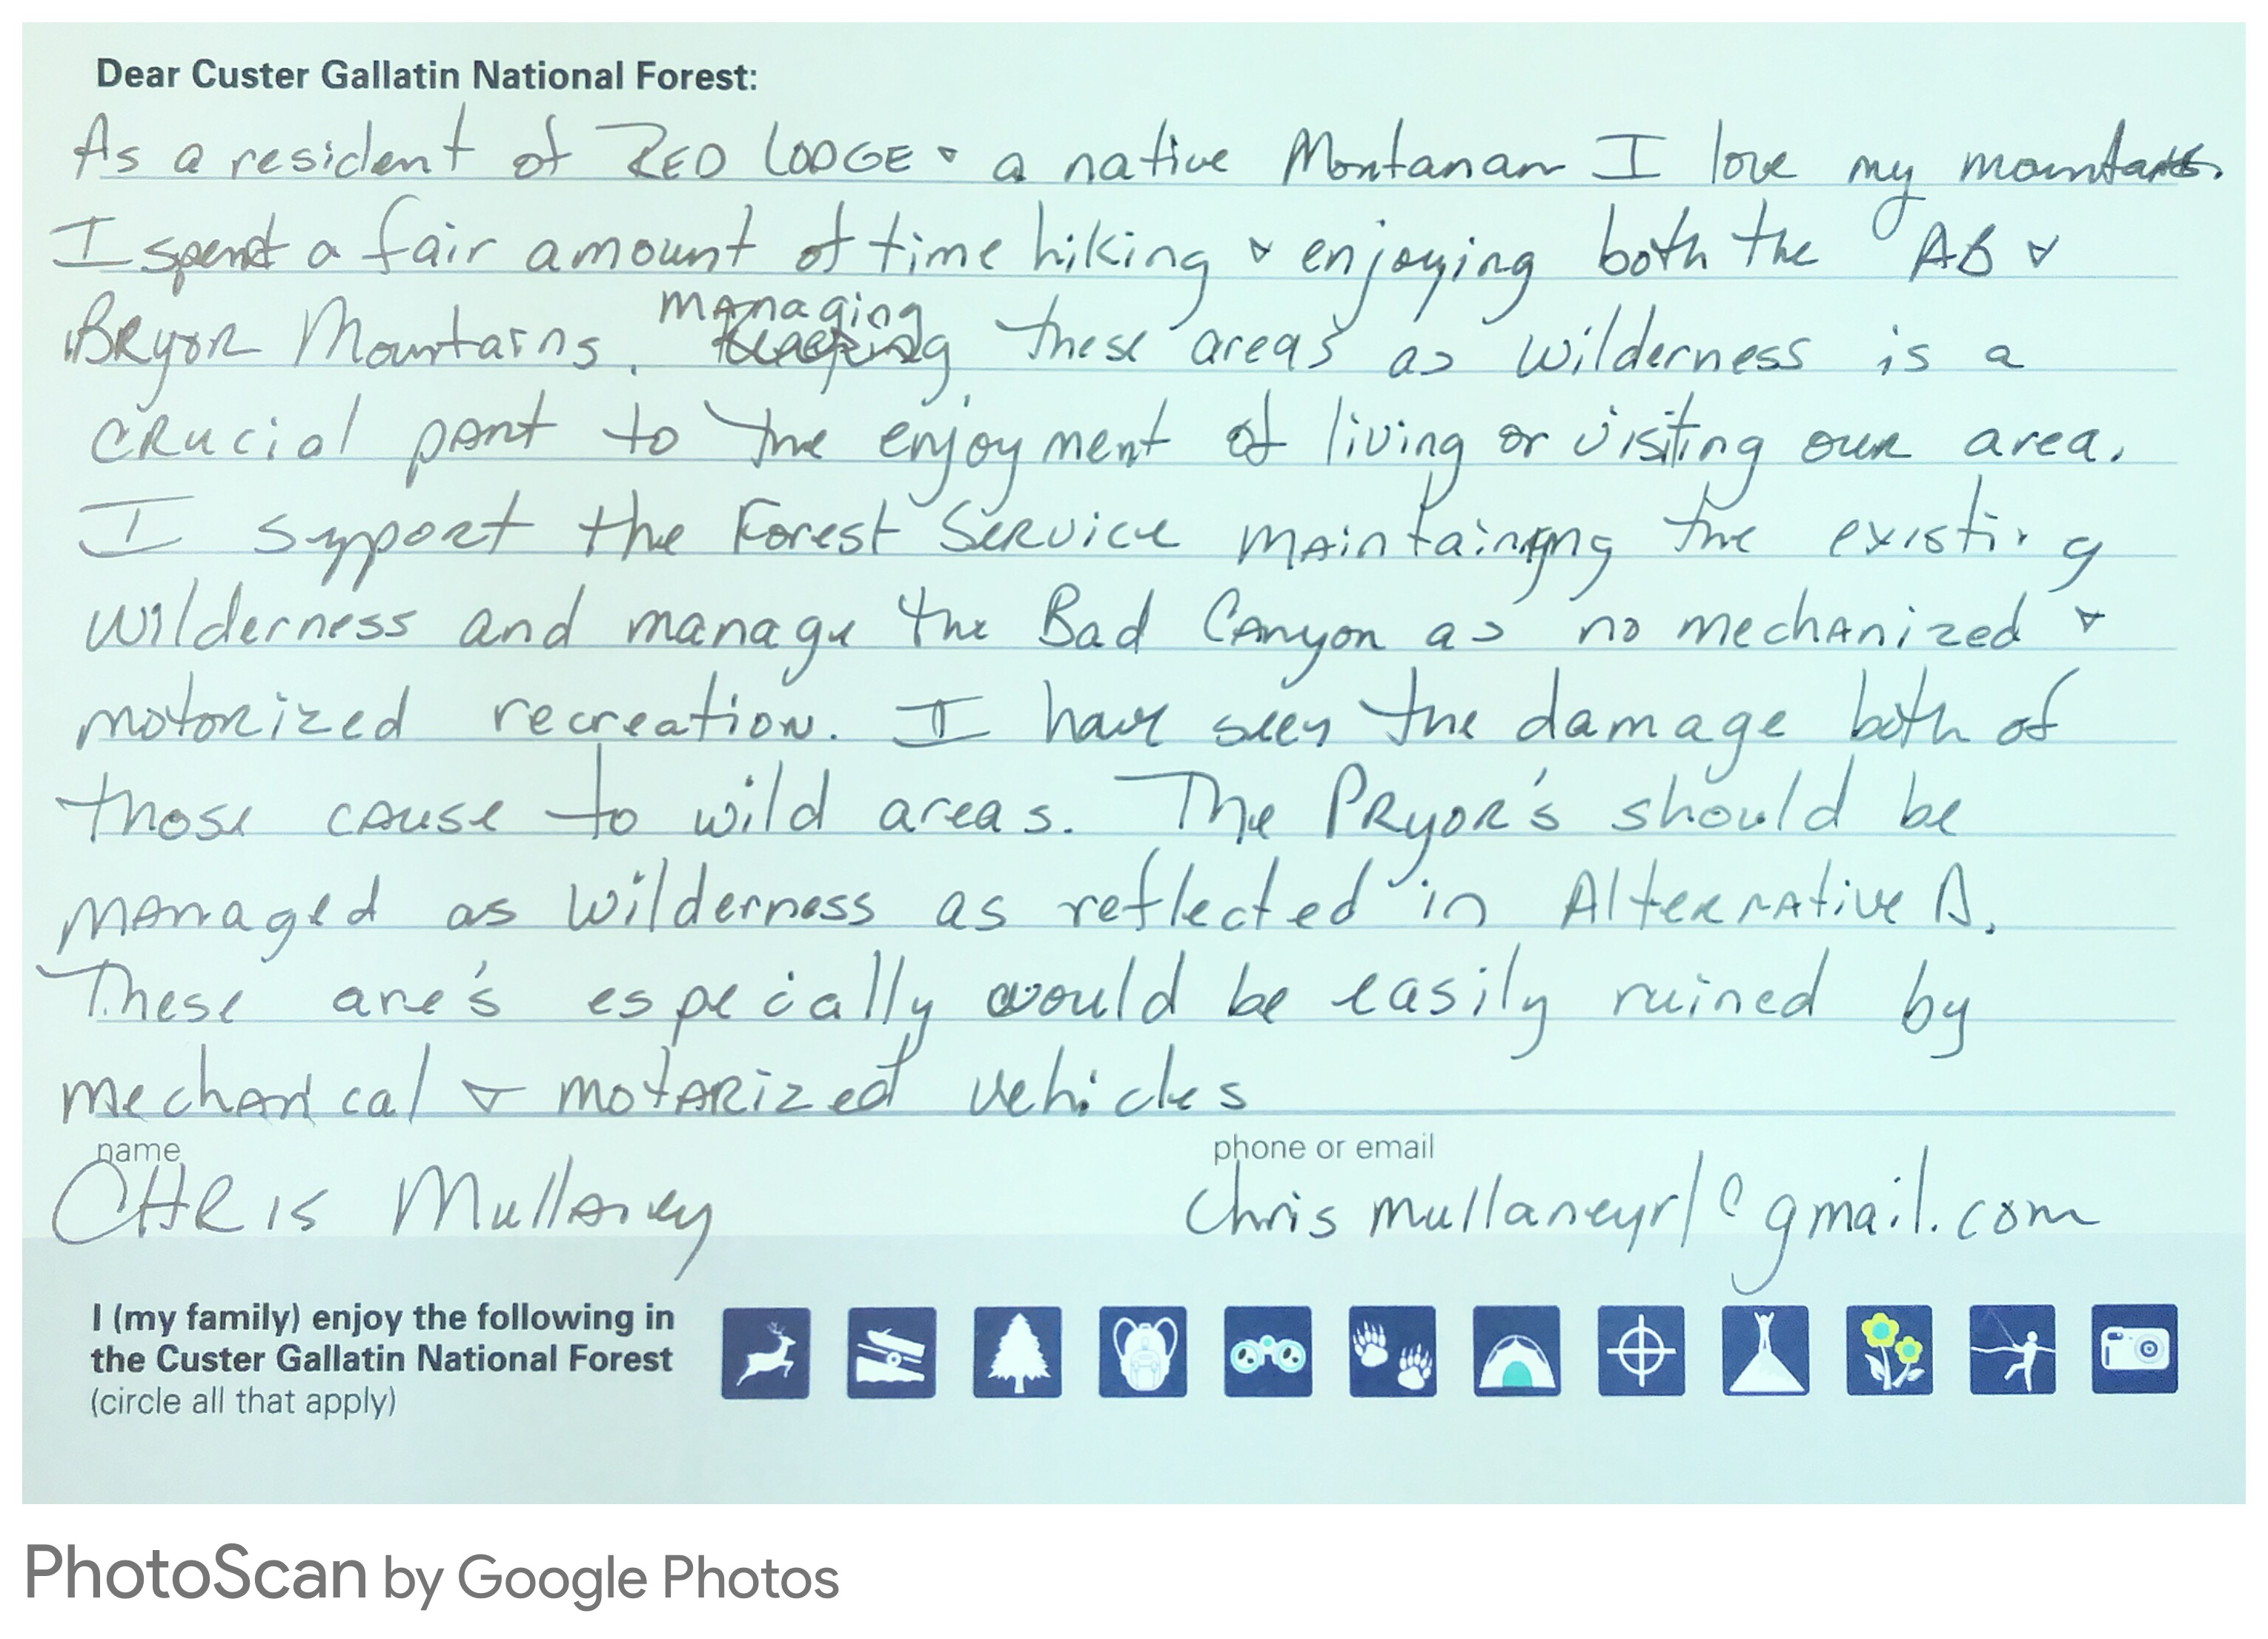 Dear Custer Gallatin National Forest:
As a resident of RED LODGE & a native Montanan I love my mountains.
I spend a fair amount of time hiking & enjoying both the AB &
Bryor Mountains. managing these areas as wilderness is a
crucial part to the enjoyment of living or visiting our area.
I support the Forest Service maintaining the existing
wilderness and manage the Bad Canyon as no mechanized &
motorized recreation. I have seen the damage both of
those cause to wild areas. The Pryor's should be
managed as wilderness as reflected in Alternative D.
These are's especially would be easily ruined by
mechanical & motarized vehicles
name
phone or email
CHRIS Mullaney
chrismullaneyrl@gmail.com
I (my family) enjoy the following in
the Custer Gallatin National Forest
(circle all that apply)
PhotoScan by Google Photos